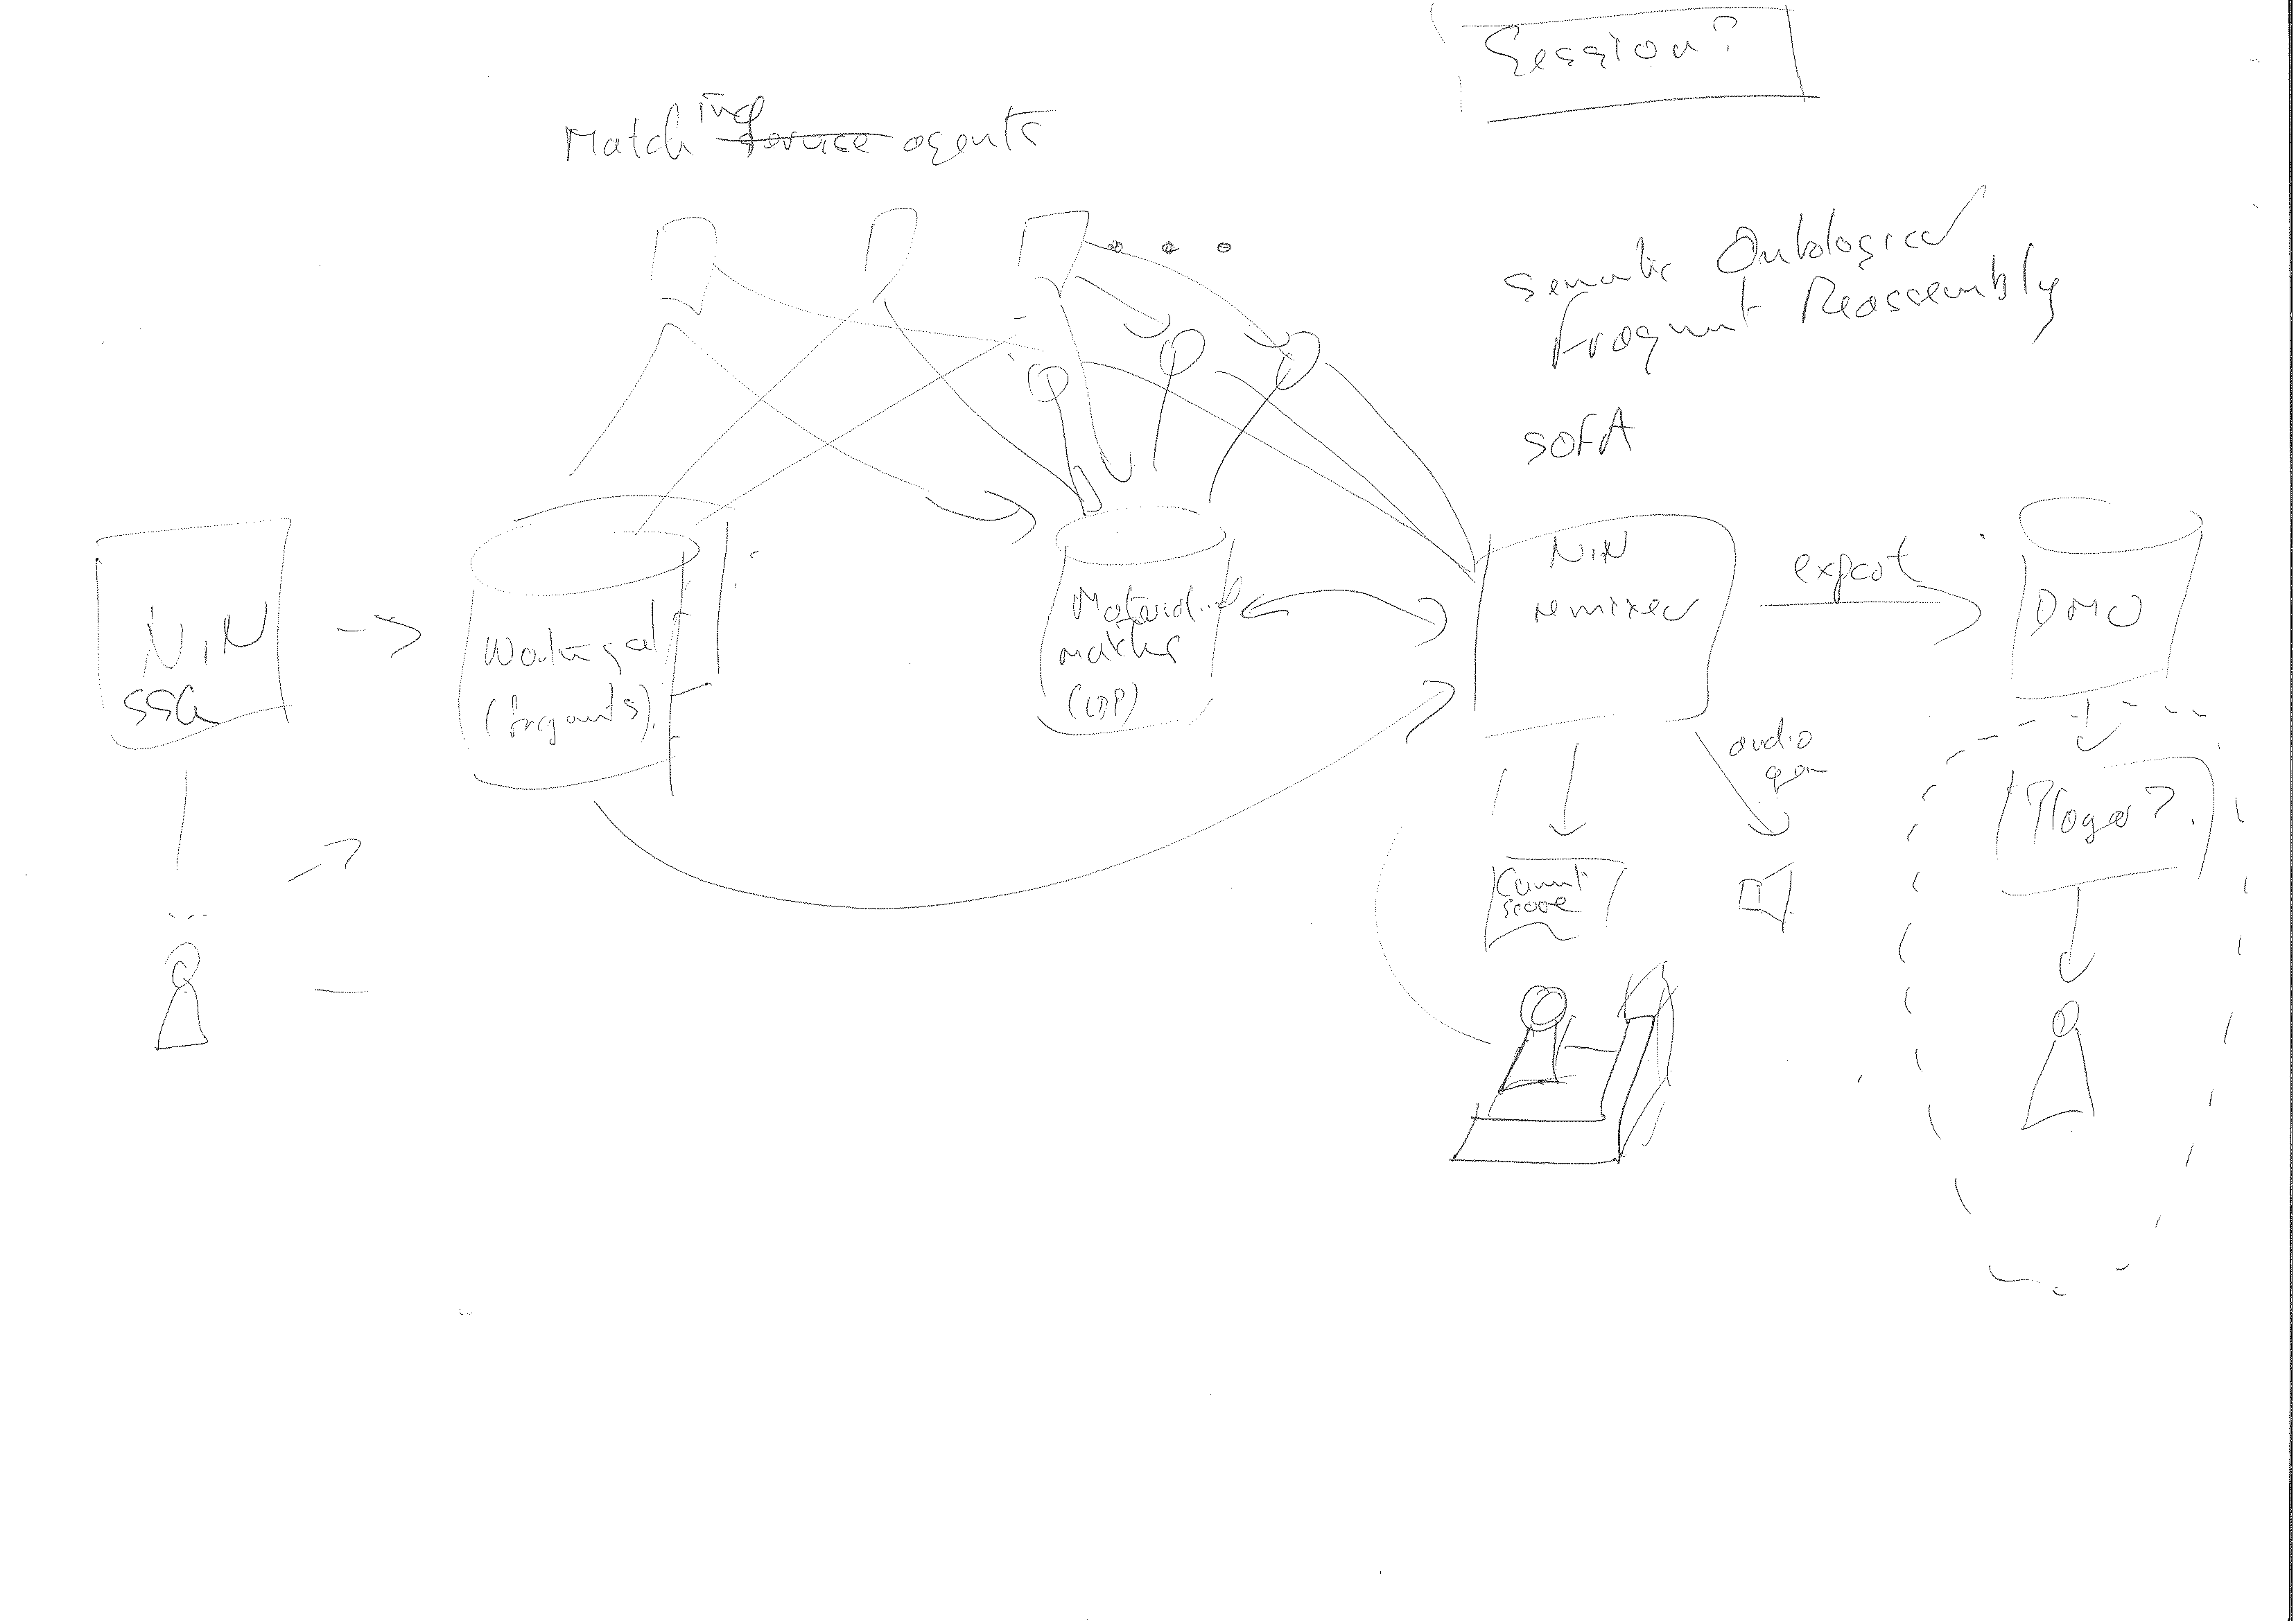 Session?
Matching service agents
Semantic Ontological
Fragment Reassembly
SOFA
NiN
SSG
Working set
(fragments)
Material
matches
(LDP)
NiN
remixer
export
DMO
audio
gen
Current
score
Player?